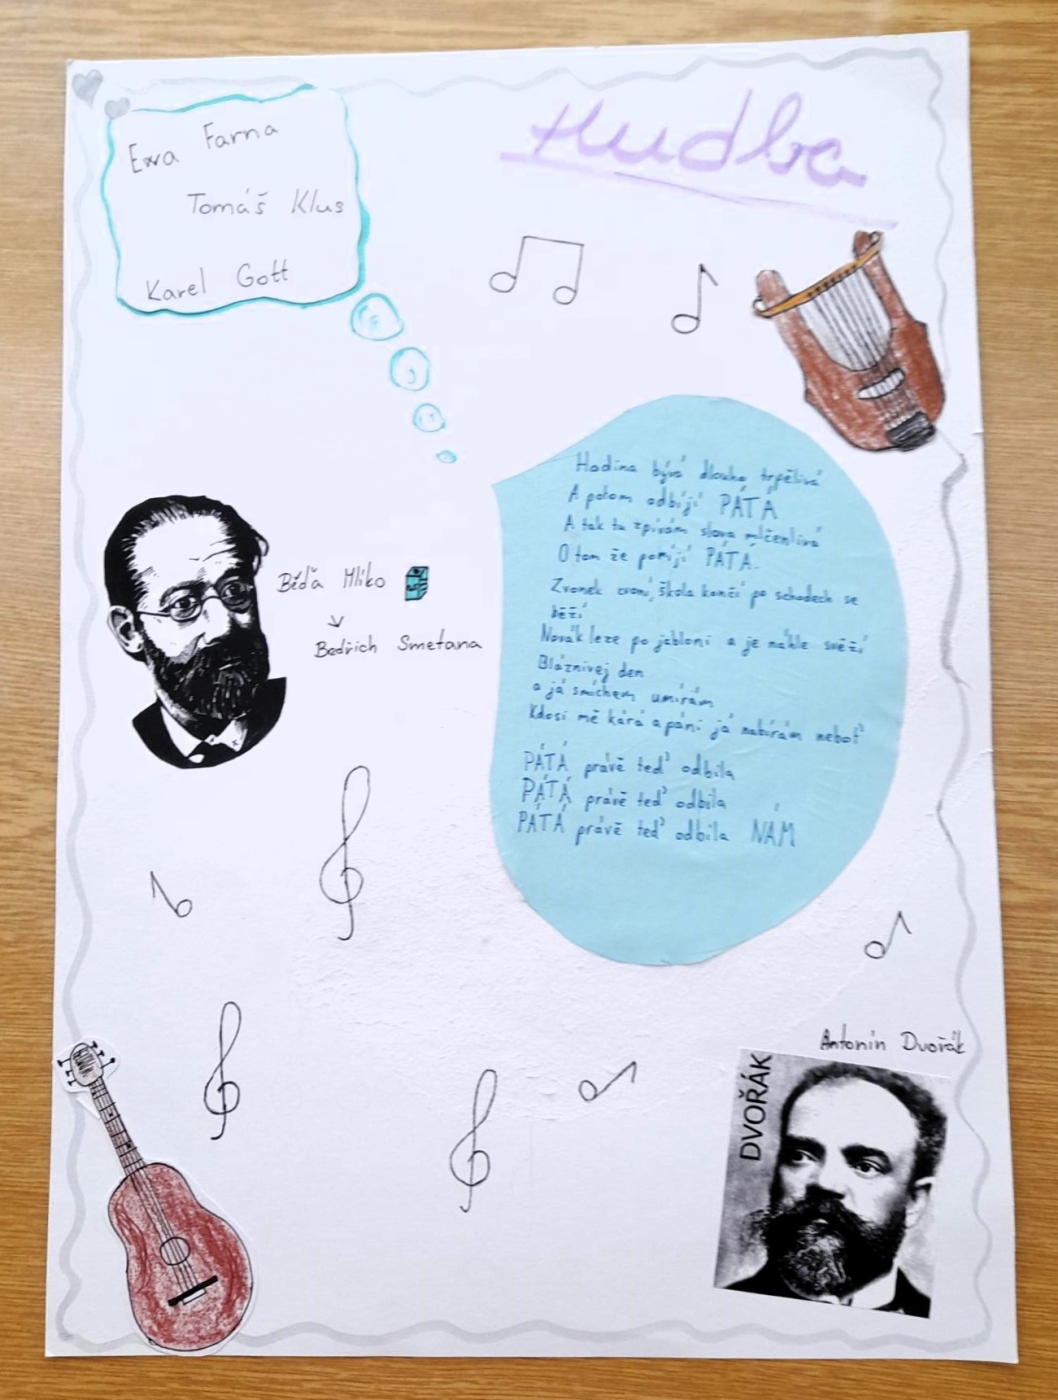 Hudba
Ewa Farna
Tomáš Klus
Karel Gott
Béďa Mlíko
Bedřich Smetana
Hodina bývá dlouho trpělivá
A potom odbíjí PÁTÁ
A tak tu zpívám slova mlčenlivá
O tom že pomíjí PÁTÁ.
Zvonek zvoní, škola končí po schodech se
běží
Novák leze po jabloni a je náhle svěží
Bláznivej den
a já smíchem umírám
Kdosi mě kárá a páni já nabírám neboť
PÁTÁ právě teď odbila
PÁTÁ právě teď odbila
PÁTÁ právě teď odbila NÁM
Antonín Dvořák
DVOŘÁK